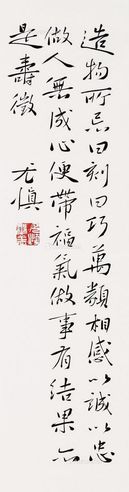 造物所忌曰刻曰巧萬類相感以誠以忠
做人無成心便帶福氣做事有結果亦
是壽徵 尤慎